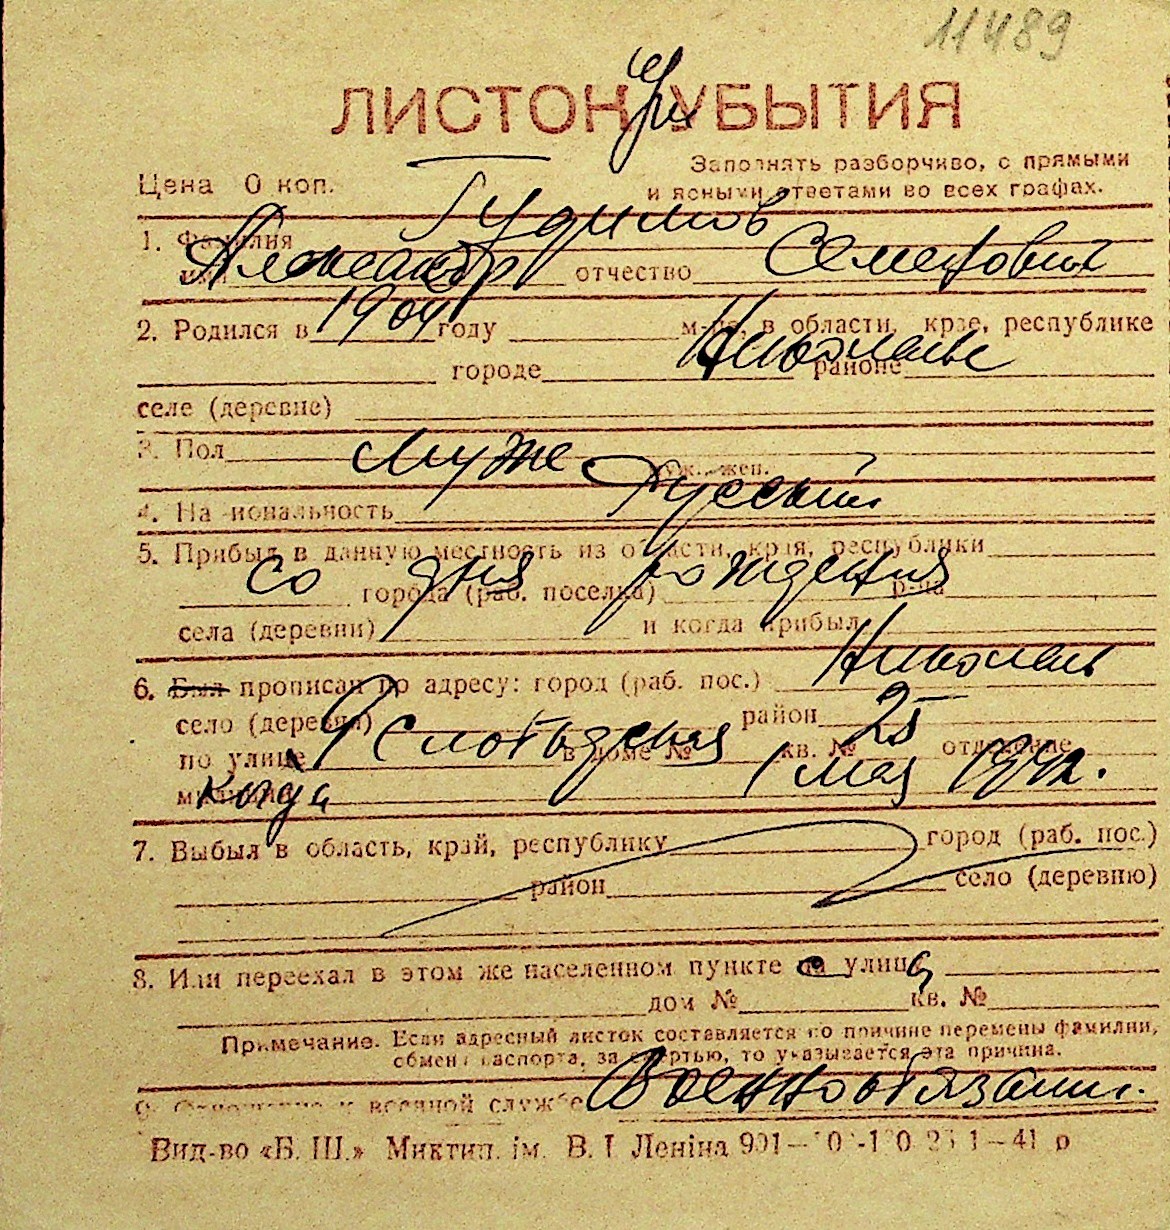 11489
ЛИСТОК УБЫТИЯ
Цена 0 коп.
Заполнять разборчиво, с прямыми
и ясными ответами во всех графах.
1. Фамилия Гудимов
имя Александр отчество Семенович
2. Родился в 1904 году м-ца, в области, крае, республике
городе Николаеве районе
селе (деревне)
3. Пол муж. муж., жен.
4. Национальность Русский
5. Прибыл в данную местность из области, края, республики
со дня рождения
города (раб. поселка) р-на
села (деревни) и когда прибыл
6. Был прописан по адресу: город (раб. пос.) Николаев
село (деревня) район
по улице Слободская в доме № 25 кв. № отделение
милиции когда 1 мая 1942.
7. Выбыл в область, край, республику город (раб. пос.)
район село (деревню)
8. Или переехал в этом же населенном пункте на улицу
дом № кв. №
Примечание. Если адресный листок составляется по причине перемены фамилии,
обмена паспорта, за смертью, то указывается эта причина.
9. Отношение к военной службе Военнообязанн.
Вид-во «Б. Ш.» Миктип. ім. В. І. Леніна